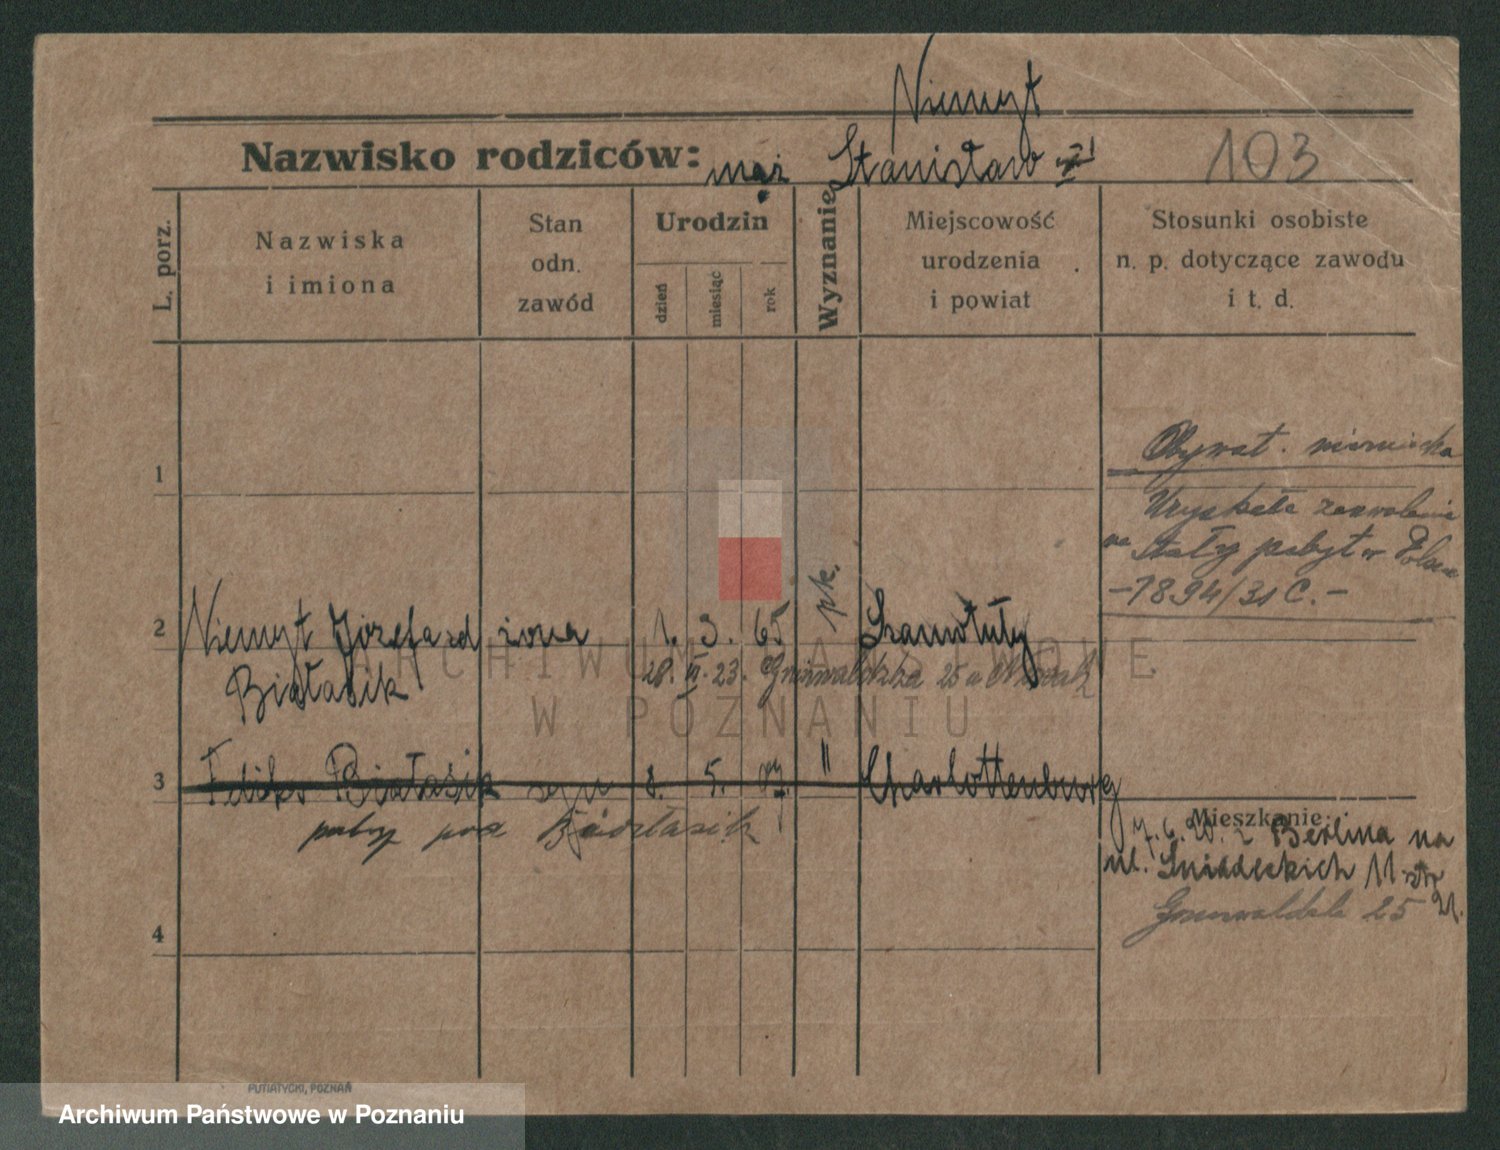 Niemyt
Nazwisko rodziców: mąż Stanisław
103
L. porz.
Nazwiska
i imiona
Stan
odn.
zawód
Urodzin
dzień
miesiąc
rok
Wyznanie
Miejscowość
urodzenia
i powiat
Stosunki osobiste
n. p. dotyczące zawodu
i t. d.
1
Obywat. niemiecka
Uzyskała zezwolenie
na stały pobyt w Polsce
-7894/31 C.-
2 Niemyt Józefa zd żona 1. 3. 65 pk. Szamotuły
Białasik
28. 23. Grunwaldzka 25 u
3 Feliks Białasik syn 8. 5. 07. " Charlottenburg
patrz pod Białasik
Mieszkanie:
7. 6. 20. z Berlina na
ul. Śniadeckich 11
Grunwaldzka 25
4
ARCHIWUM PAŃSTWOWE
W POZNANIU
PUTIATYCKI, POZNAŃ
Archiwum Państwowe w Poznaniu